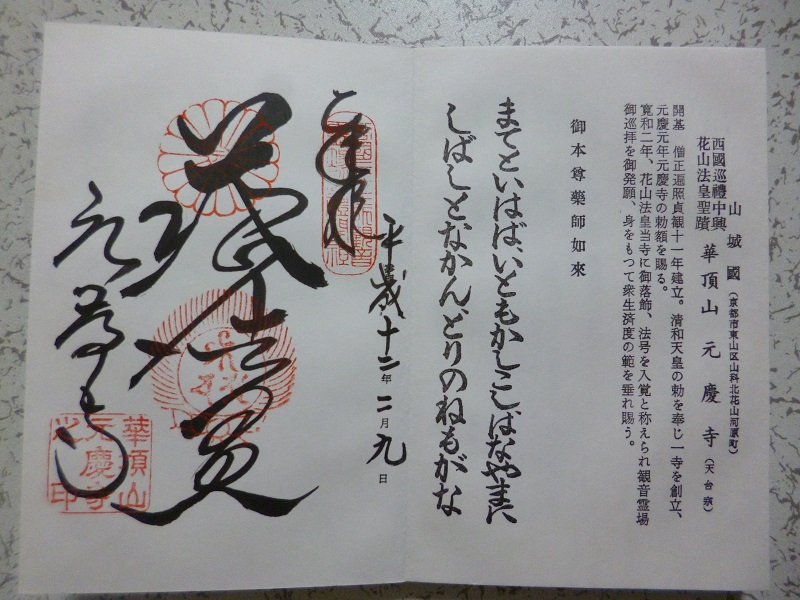 山城國（京都市東山区山科北花山河原町）
西國巡禮中興
花山法皇聖蹟
華頂山元慶寺（天台宗）
開基　僧正遍照貞観十一年建立。清和天皇の勅を奉じ一寺を創立、
元慶元年元慶寺の勅額を賜る。
寛和二年、花山法皇当寺に御落飾、法号を入覚と称えられ観音霊場
御巡拝を御発願、身をもつて衆生済度の範を垂れ賜う。
御本尊藥師如來
まてといはばいともかしこしはなやまに
しばしとなかんとりのねもがな
平成十二年二月九日
奉拝
元慶寺
華頂山
元慶寺
之印